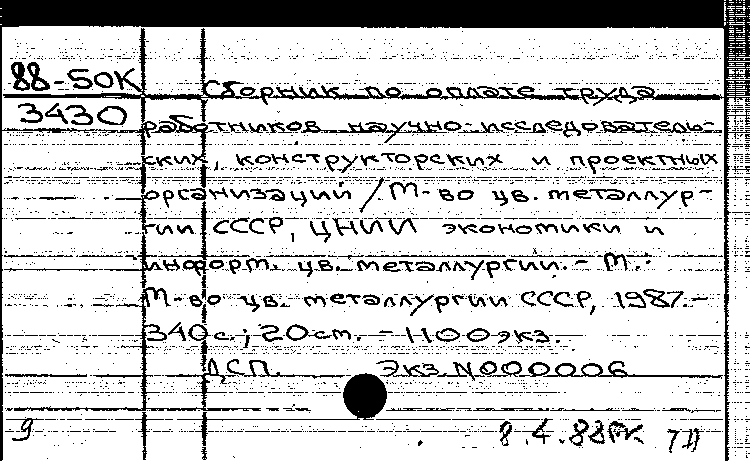 88-50К
3430
Сборник по оплате труда
работников научно-исследователь-
ских, конструкторских и проектных
организаций / М-во цв. металлур-
гии СССР, ЦНИИ экономики и
информ. цв. металлургии. - М.:
М-во цв. металлургии СССР, 1987. -
340 с.; 20 см. - 1100 экз.
ДСП. Экз. N000006
9
8.4.88